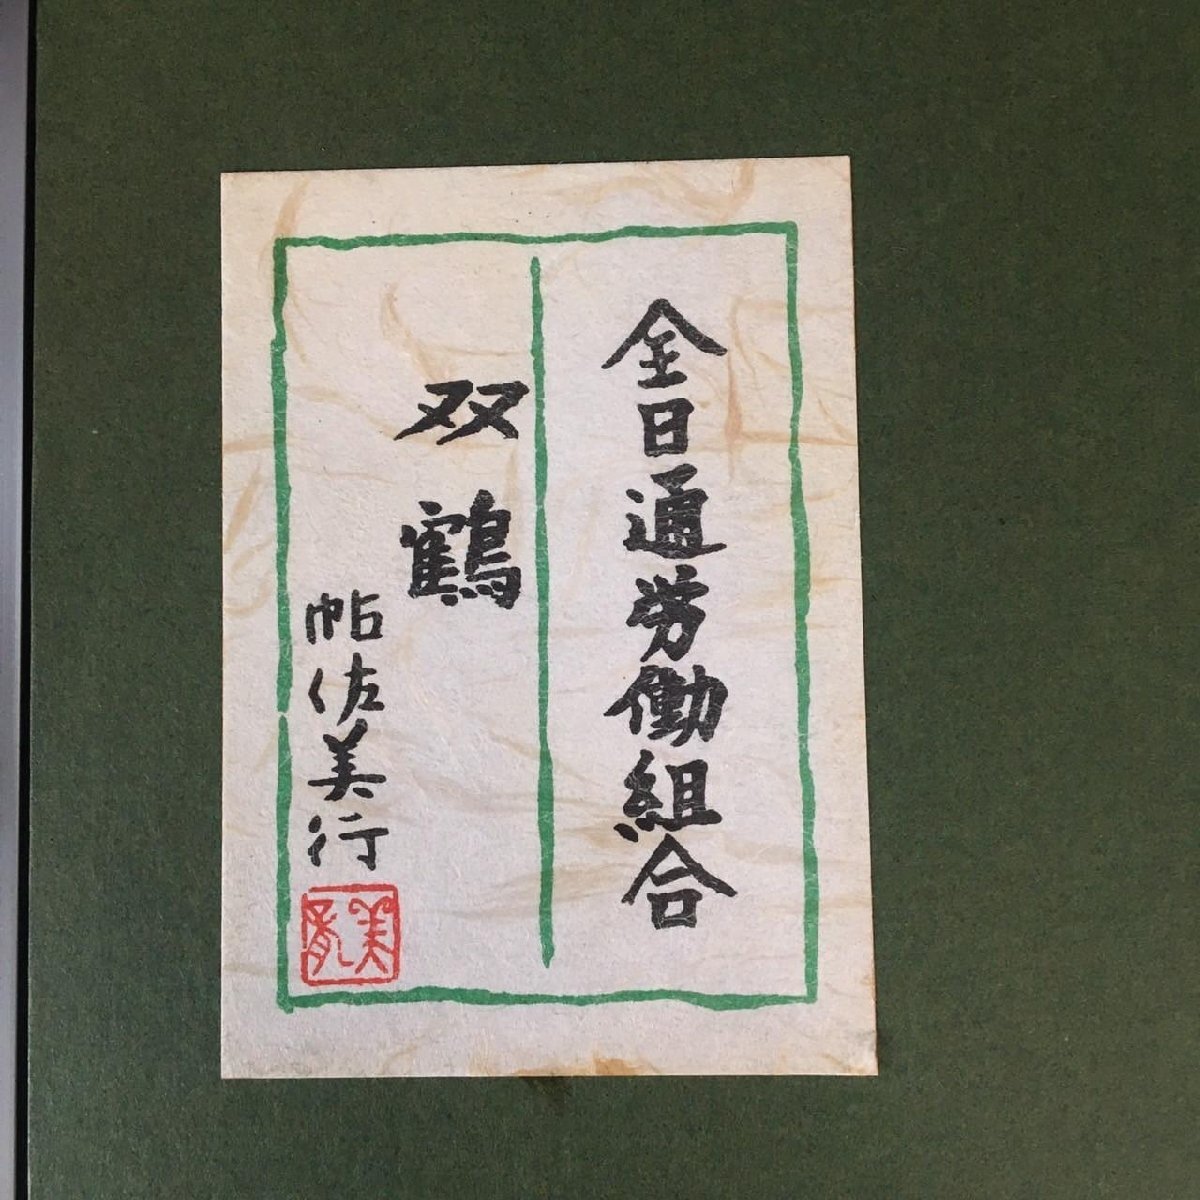 全日通労働組合
双鶴
帖佐美行
美